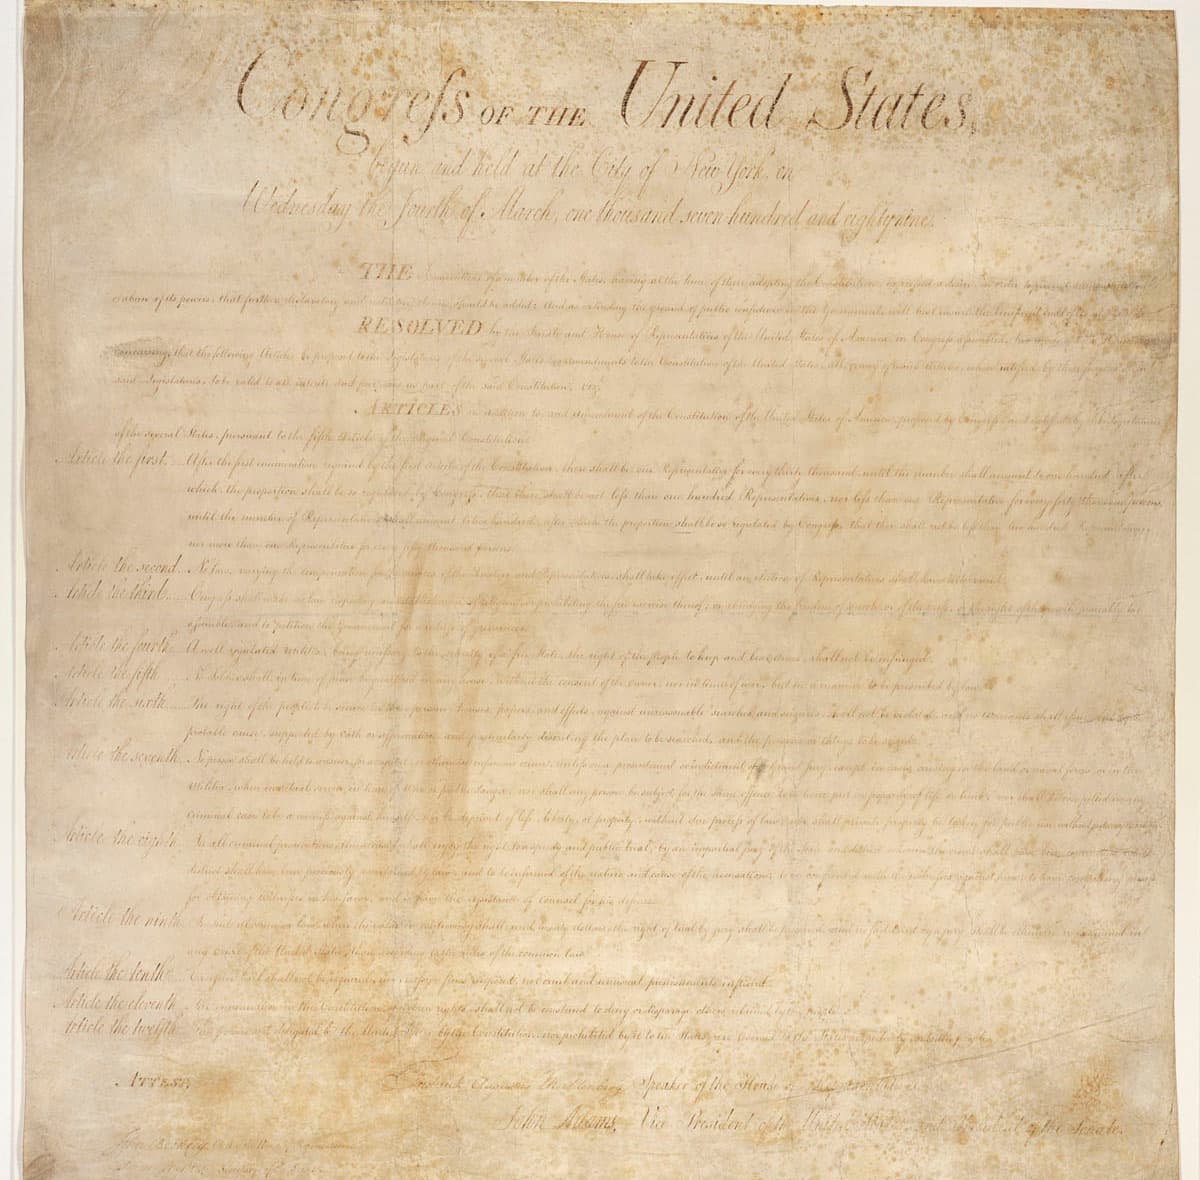 Congreſs OF THE United States,
begun and held at the City of New York, on
Wednesday the fourth of March, one thousand seven hundred and eighty nine.
THE Conventions of a number of the States, having at the time of their adopting the Constitution, expressed a desire, in order to prevent
of its powers, that further declaratory and restrictive clauses should be added: And as extending the ground of public confidence in the Government, will best ensure the beneficent ends of its
RESOLVED by the Senate and House of Representatives of the United States of America, in Congreſs aſsembled, two thirds of
concurring, that the following Articles be proposed to the Legislatures of the several States, as amendments to the Constitution of the United States, all, or any of which Articles, when ratified by three fourths of
said Legislatures, to be valid to all intents and purposes, as part of the said Constitution; viz.
ARTICLES in addition to, and amendment of the Constitution of the United States of America, proposed by Congreſs, and ratified by the Legislatures
of the several States, pursuant to the fifth Article of the original Constitution.
Article the first. After the first enumeration required by the first Article of the Constitution, there shall be one Representative for every thirty thousand, until the number shall amount to one hundred, after
which, the proportion shall be so regulated by Congreſs, that there shall be not leſs than one hundred Representatives, nor leſs than one Representative for every forty thousand persons,
until the number of Representatives shall amount to two hundred, after which, the proportion shall be so regulated by Congreſs, that there shall not be leſs than two hundred Representatives,
nor more than one Representative for every fifty thousand persons.
Article the second. No law, varying the compensation for the services of the Senators and Representatives, shall take effect, until an election of Representatives shall have intervened.
Article the third. Congreſs shall make no law respecting an establishment of religion, or prohibiting the free exercise thereof; or abridging the freedom of speech, or of the preſs; or the right of the people peaceably to
aſsemble, and to petition the Government for a redreſs of grievances.
Article the fourth. A well regulated Militia, being neceſsary to the security of a free State, the right of the people to keep and bear Arms, shall not be infringed.
Article the fifth. No Soldier shall, in time of peace be quartered in any house, without the consent of the owner, nor in time of war, but in a manner to be prescribed by law.
Article the sixth. The right of the people to be secure in their persons, houses, papers, and effects, against unreasonable searches and seizures, shall not be violated, and no warrants shall iſsue, but upon
probable cause, supported by oath or affirmation, and particularly describing the place to be searched, and the persons or things to be seized.
Article the seventh. No person shall be held to answer for a capital, or otherwise infamous crime, unleſs on a presentment or indictment of a Grand jury, except in cases arising in the land or naval forces, or in the
Militia, when in actual service in time of War or public danger; nor shall any person be subject for the same offence to be twice put in jeopardy of life or limb; nor shall be compelled in any
criminal case to be a witneſs against himself, nor be deprived of life, liberty, or property, without due proceſs of law; nor shall private property be taken for public use without just
Article the eighth. In all criminal prosecutions, the accused shall enjoy the right to a speedy and public trial, by an impartial jury of the State and district wherein the crime shall have been committed, which
district shall have been previously ascertained by law, and to be informed of the nature and cause of the accusation; to be confronted with the witneſses against him; to have compulsory proceſs
for obtaining witneſses in his favor, and to have the aſsistance of counsel for his defence.
Article the ninth. In suits at common law, where the value in controversy shall exceed twenty dollars, the right of trial by jury shall be preserved, and no fact tried by a jury, shall be otherwise re-examined in
any Court of the United States, than according to the rules of the common law.
Article the tenth. Exceſsive bail shall not be required, nor exceſsive fines imposed, nor cruel and unusual punishments inflicted.
Article the eleventh. The enumeration in the Constitution, of certain rights, shall not be construed to deny or disparage others retained by the people.
Article the twelfth. The powers not delegated to the United States by the Constitution, nor prohibited by it to the States, are reserved to the States respectively, or to the people.
ATTEST,
Frederick Augustus Muhlenberg Speaker of the House of Representatives
John Adams, Vice President of the United States, and President of the Senate.
John Beckley,
Secretary of the Senate